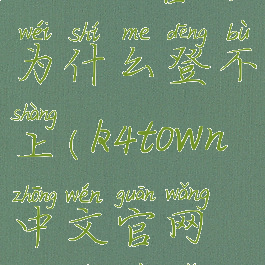 wéi shí me dēng bù
为什么登不
shàng
上（k4town
zhōng wén guān wǎng
中文官网